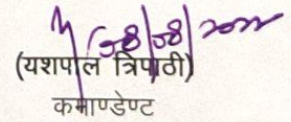 08/08/2022
(यशपाल त्रिपाठी)
कमाण्डेण्ट